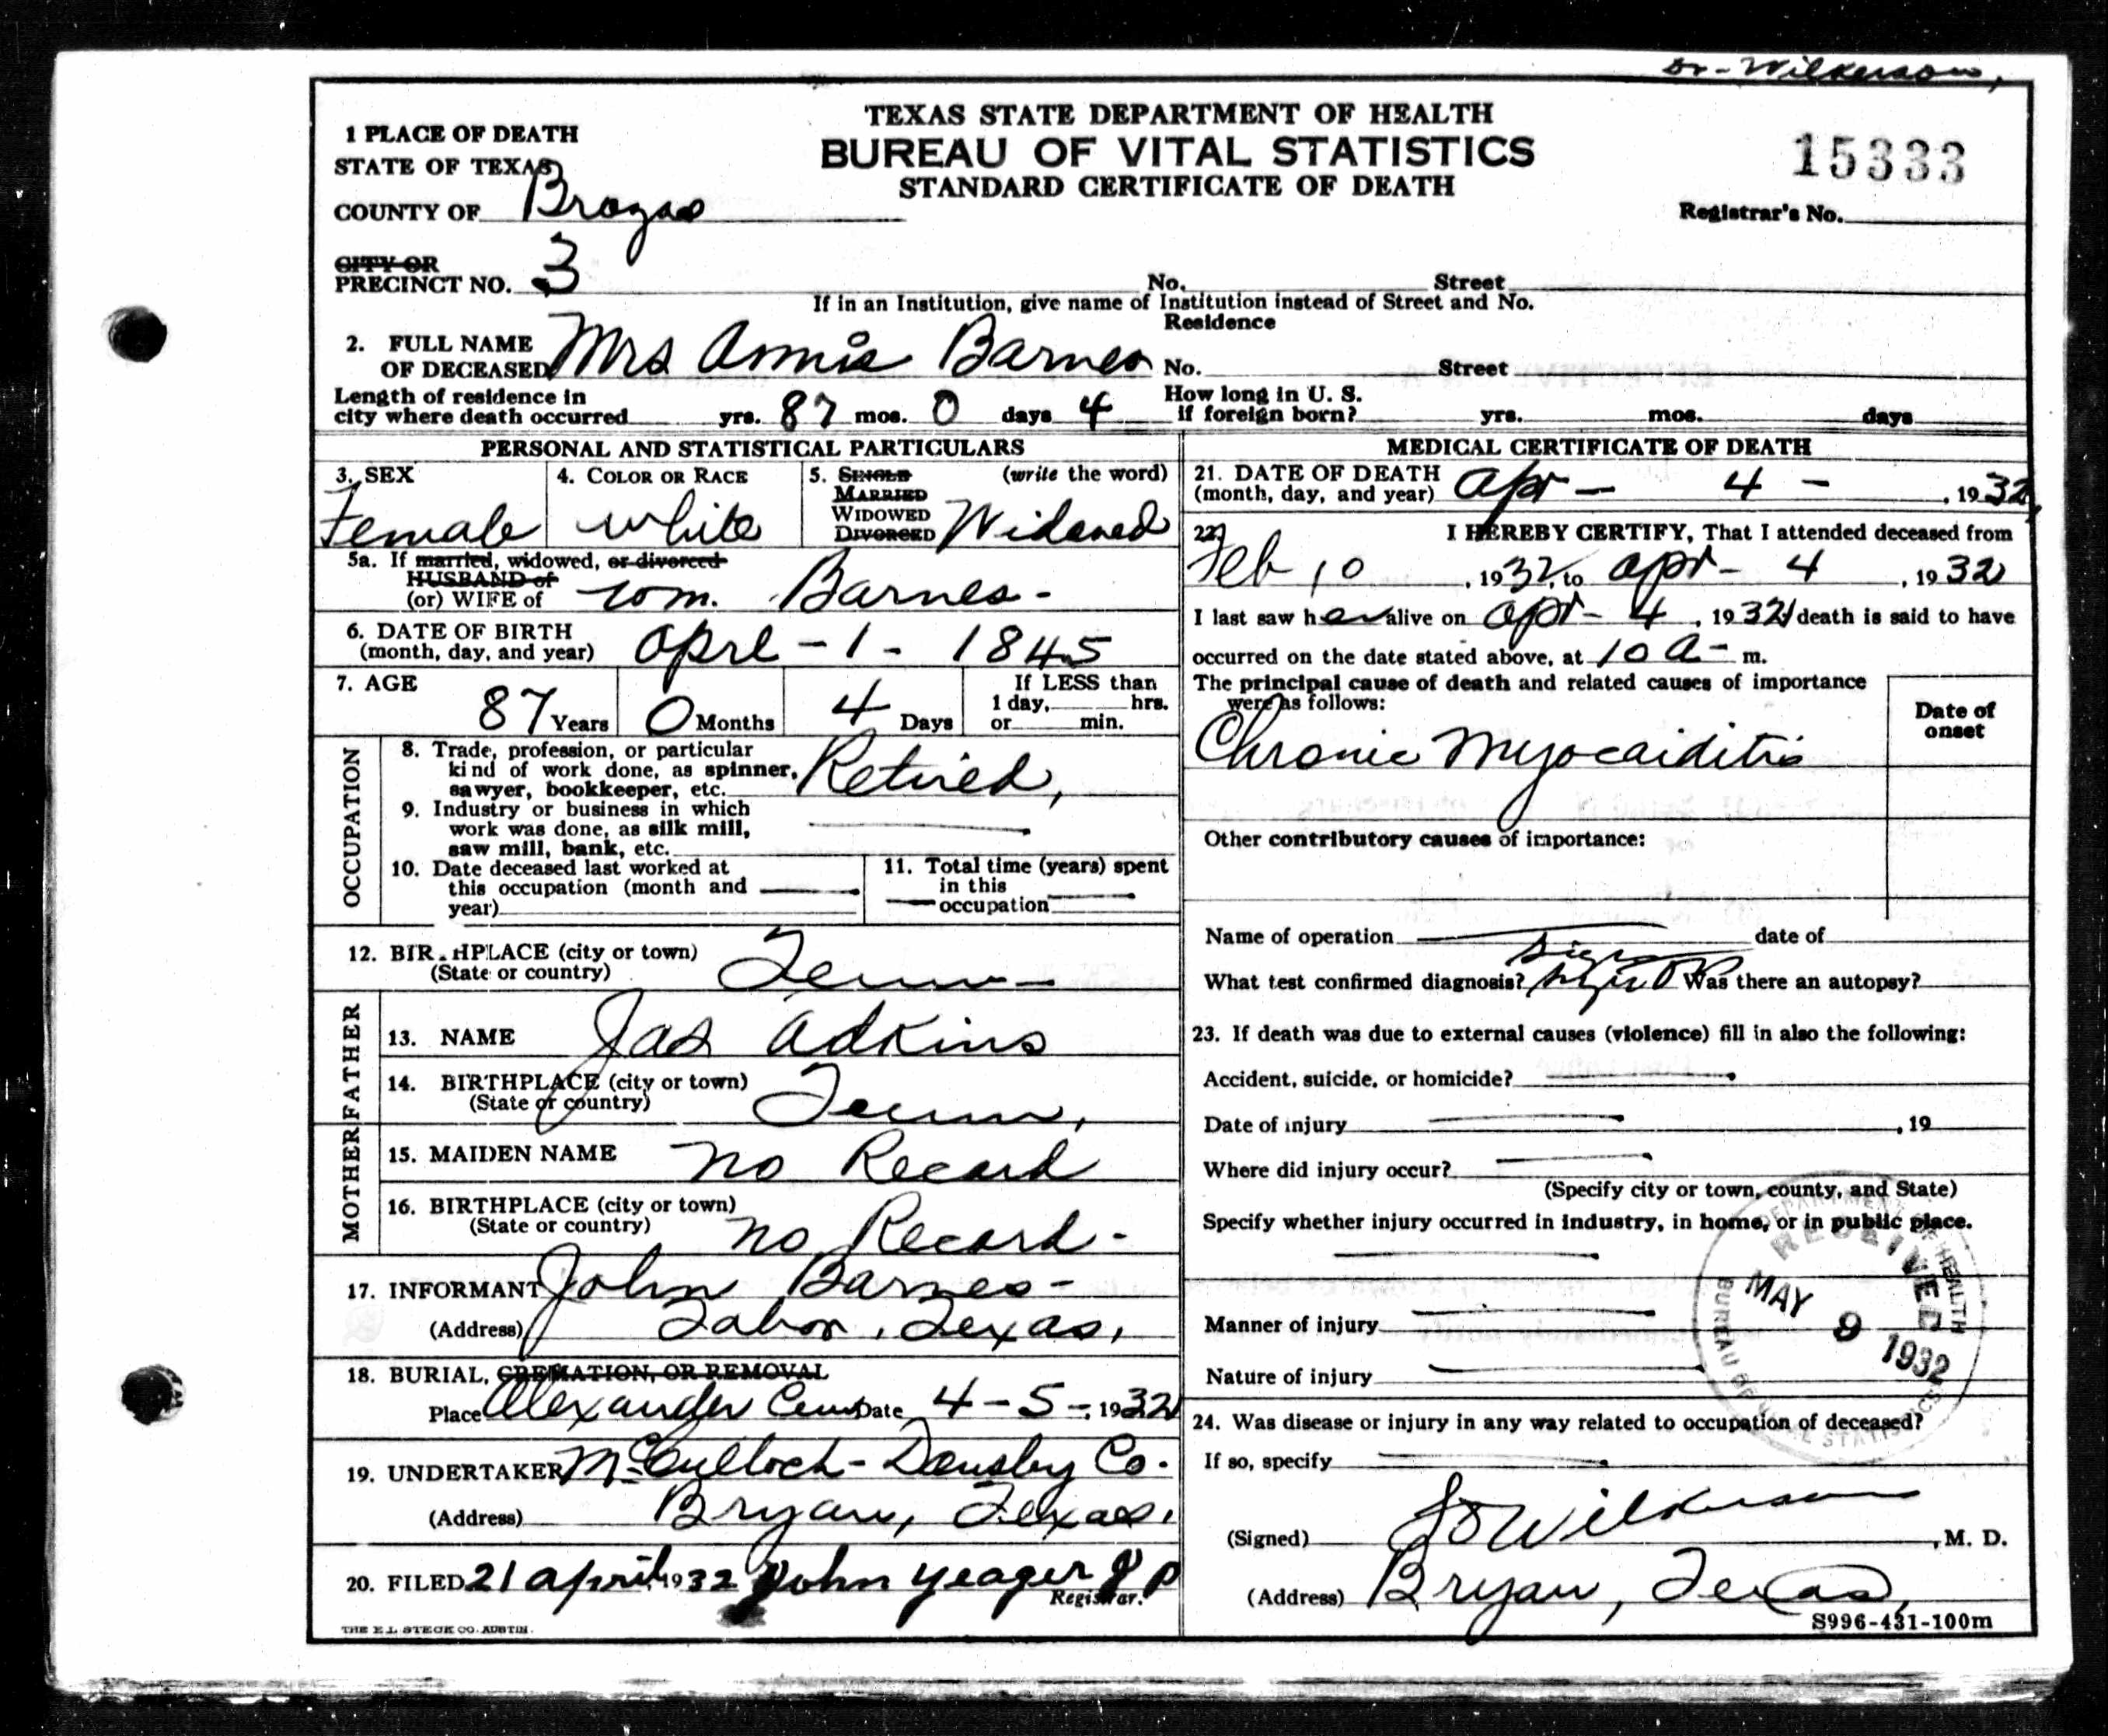 Dr - Wilkerson,
TEXAS STATE DEPARTMENT OF HEALTH
BUREAU OF VITAL STATISTICS
STANDARD CERTIFICATE OF DEATH
15333
Registrar's No.
1 PLACE OF DEATH
STATE OF TEXAS
COUNTY OF Brazos
CITY OR
PRECINCT NO. 3 No. Street
If in an Institution, give name of Institution instead of Street and No.
Residence
2. FULL NAME
OF DECEASED Mrs Annie Barnes No. Street
Length of residence in
city where death occurred yrs. 87 mos. 0 days 4
How long in U. S.
if foreign born? yrs. mos. days
PERSONAL AND STATISTICAL PARTICULARS
3. SEX
Female
4. COLOR OR RACE
White
5. SINGLE (write the word)
MARRIED
WIDOWED
DIVORCED Widowed
5a. If married, widowed, or divorced
HUSBAND of
(or) WIFE of Wm. Barnes -
6. DATE OF BIRTH
(month, day, and year) Aprl - 1 - 1845
7. AGE
87 Years 0 Months 4 Days
If LESS than
1 day, hrs.
or min.
OCCUPATION
8. Trade, profession, or particular
kind of work done, as spinner,
sawyer, bookkeeper, etc. Retired,
9. Industry or business in which
work was done, as silk mill,
saw mill, bank, etc.
10. Date deceased last worked at
this occupation (month and
year)
11. Total time (years) spent
in this
occupation
12. BIRTHPLACE (city or town)
(State or country) Tenn -
FATHER
13. NAME Jas Adkins
14. BIRTHPLACE (city or town)
(State or country) Tenn,
MOTHER
15. MAIDEN NAME No Record
16. BIRTHPLACE (city or town)
(State or country) No Record -
17. INFORMANT John Barnes -
(Address) Tabor, Texas,
18. BURIAL, CREMATION, OR REMOVAL
Place Alexander Cem Date 4 - 5 - 1932
19. UNDERTAKER McCulloch - Dansby Co.
(Address) Bryan, Texas.
20. FILED 21 April 1932 John Yeager J P
Registrar.
THE E.L. STECK CO. AUSTIN.
MEDICAL CERTIFICATE OF DEATH
21. DATE OF DEATH
(month, day, and year) Apr - 4 - , 1932,
22. I HEREBY CERTIFY, That I attended deceased from
Feb 10 , 1932, to Apr - 4 , 1932
I last saw her alive on Apr - 4 , 1932, death is said to have
occurred on the date stated above, at 10 A - m.
The principal cause of death and related causes of importance
were as follows:
Date of
onset
Chronic Myocarditis
Other contributory causes of importance:
Name of operation date of
What test confirmed diagnosis? Signs Was there an autopsy?
23. If death was due to external causes (violence) fill in also the following:
Accident, suicide, or homicide?
Date of injury , 19
Where did injury occur?
(Specify city or town, county, and State)
Specify whether injury occurred in industry, in home, or in public place.
Manner of injury
Nature of injury
DEPARTMENT OF HEALTH
RECEIVED
MAY 9 1932
BUREAU OF VITAL STATISTICS
24. Was disease or injury in any way related to occupation of deceased?
If so, specify
(Signed) Wilkerson , M. D.
(Address) Bryan, Texas,
S996-431-100m